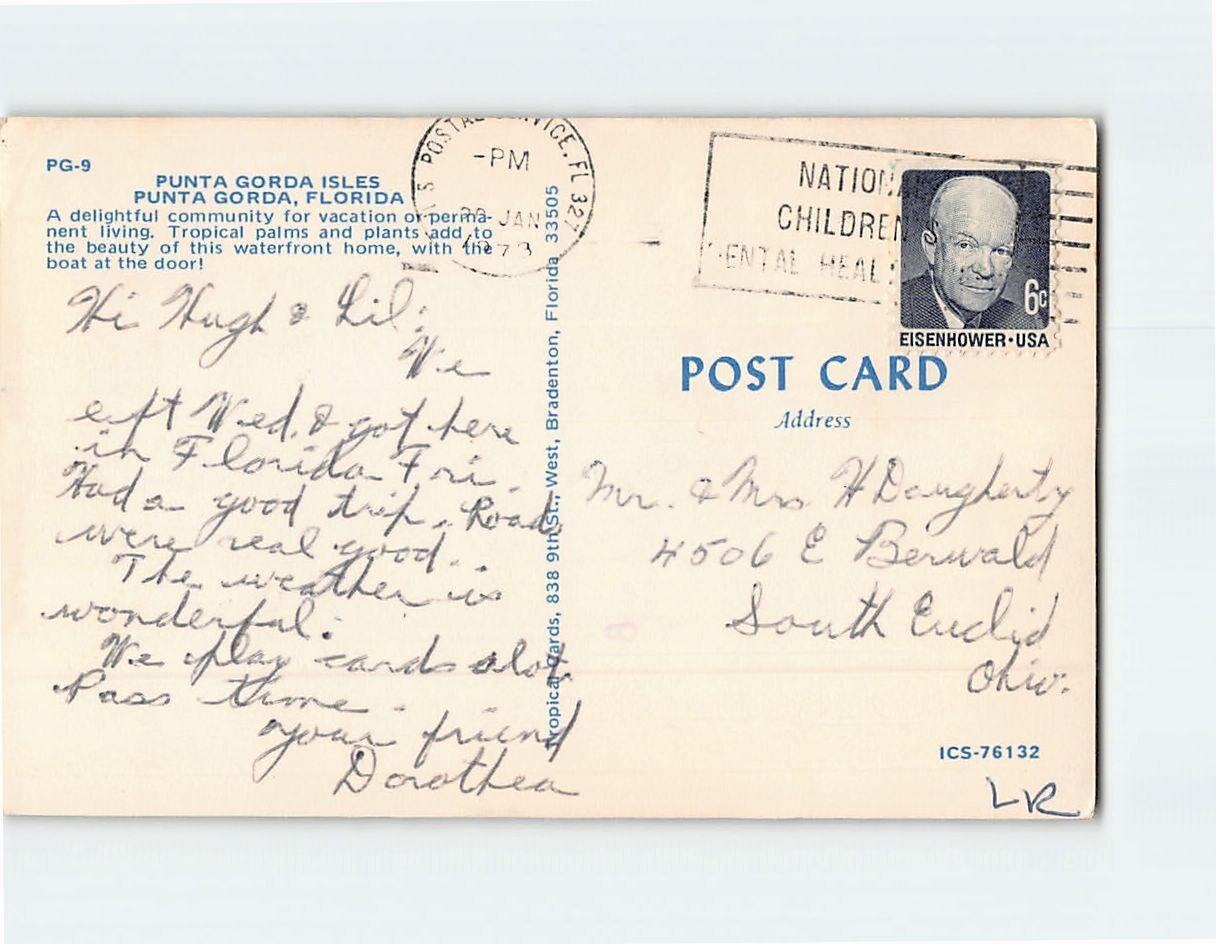 PG-9
PUNTA GORDA ISLES
PUNTA GORDA, FLORIDA
A delightful community for vacation or perma-
nent living. Tropical palms and plants add to
the beauty of this waterfront home, with the
boat at the door!
Hi Hugh & Lil:
We
eft Wed. & got here
in Florida Fri.
Had a good trip. Roads
were real good.
The weather is
wonderful.
We play cards alot.
Pass time.
your friend
Dorothea
ropical Cards, 838 9th St., West, Bradenton, Florida 33505
POSTAL SERVICE, FL 327
-PM
JAN
1973
NATIONA
CHILDREN
ENTAL HEAL
6c
EISENHOWER · USA
POST CARD
Address
Mr. & Mrs H Daugherty
4506 E Berwald
South Euclid
Ohio.
ICS-76132
LR